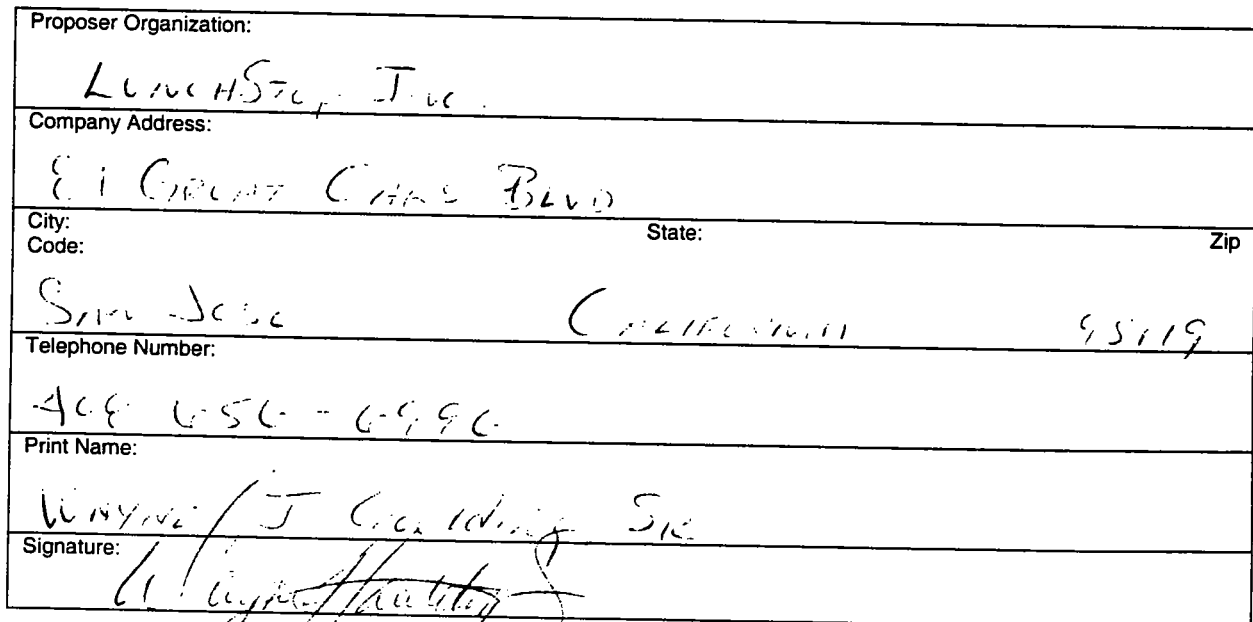 Proposer Organization:
LunchStop Inc.
Company Address:
81 Great Oaks BLVD
City: State: Zip
Code:
San Jose California 95119
Telephone Number:
408
Print Name:
Wayne J Goulding Sr.
Signature:
Wayne